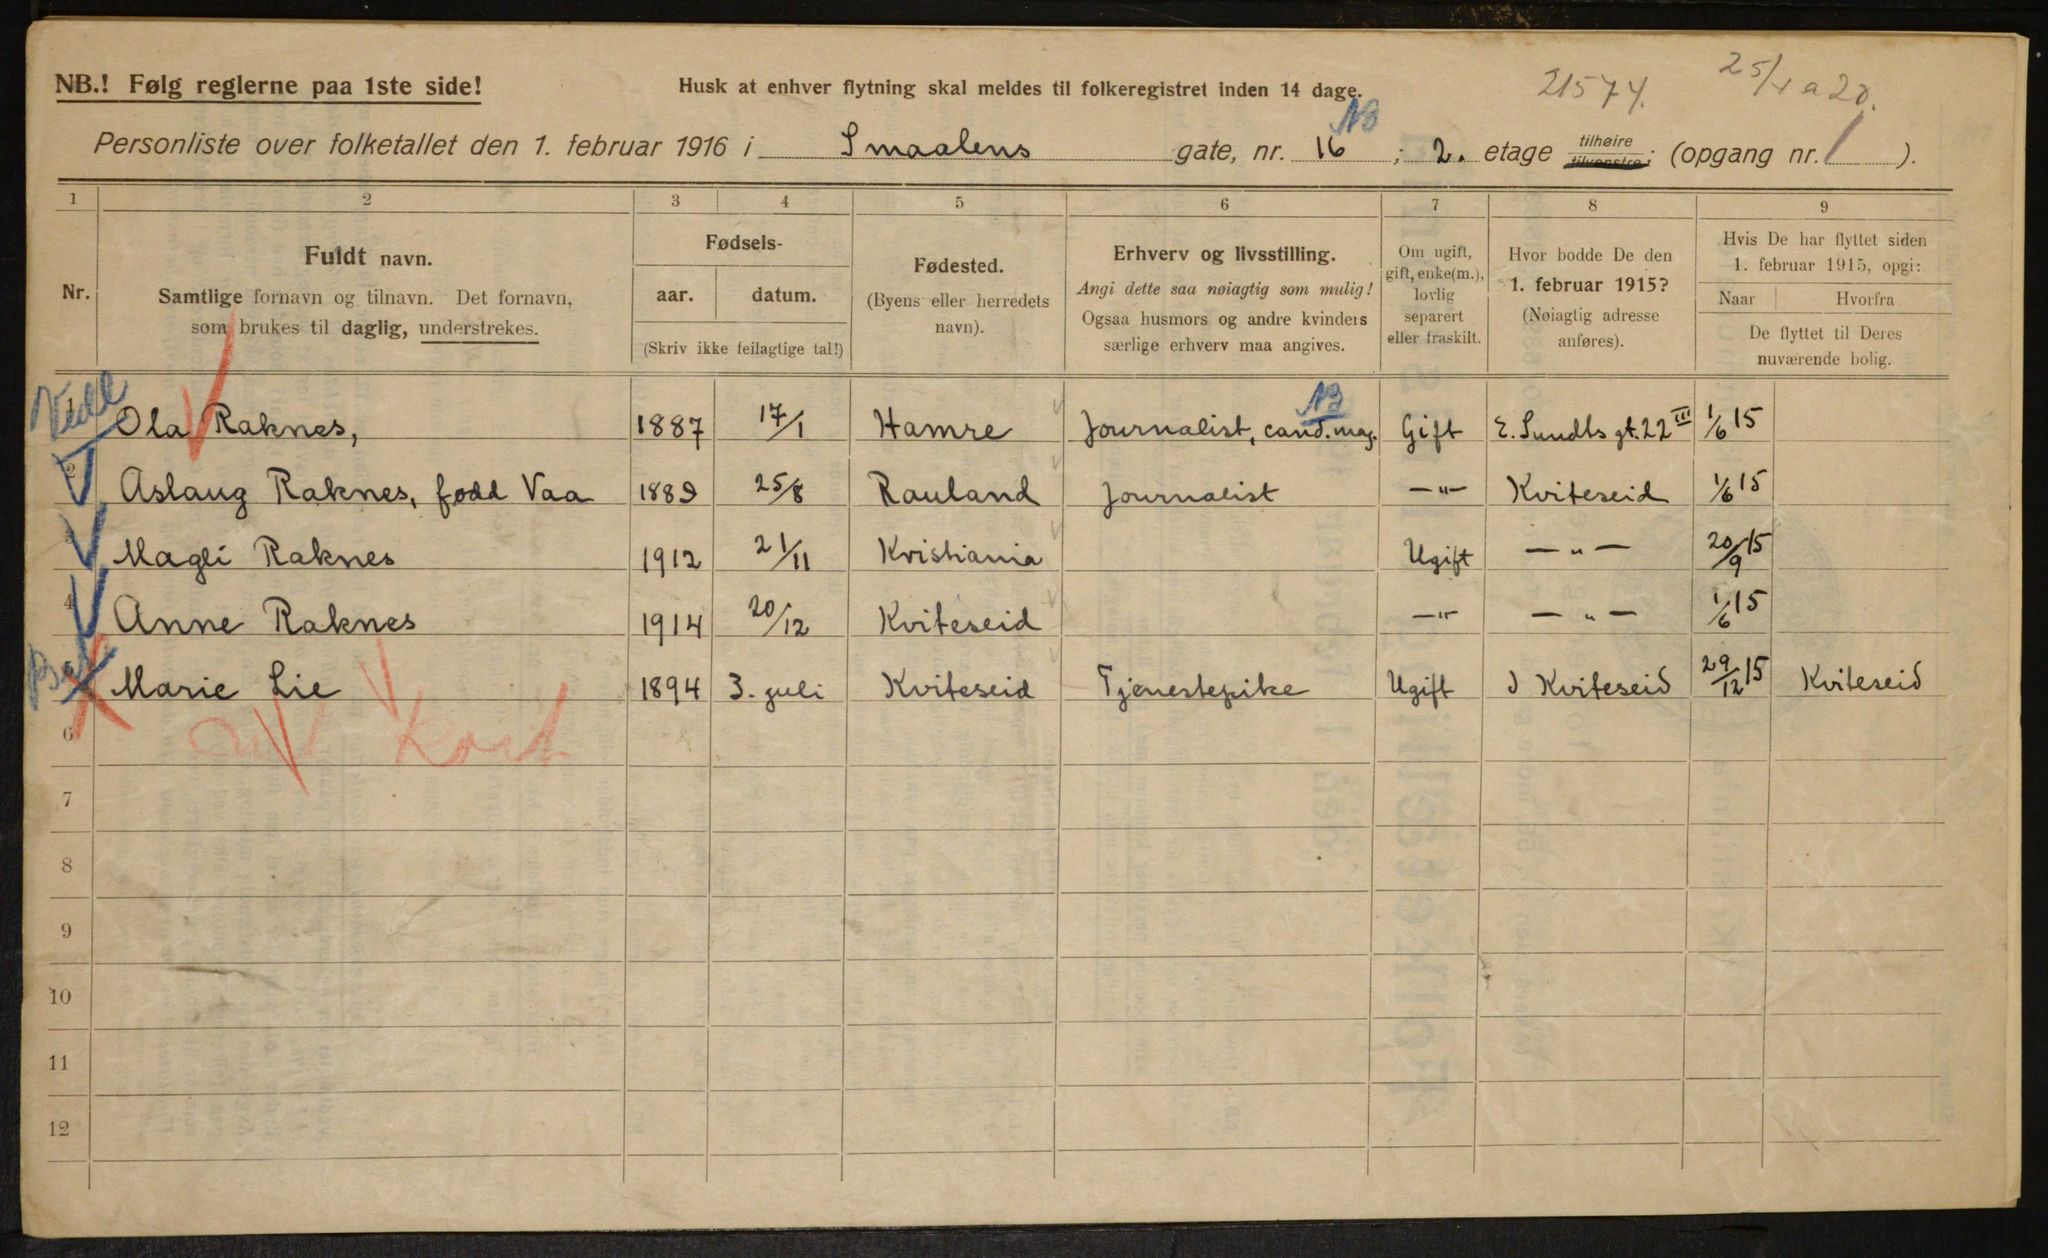 NB.! Følg reglerne paa 1ste side!
Husk at enhver flytning skal meldes til folkeregistret inden 14 dage.
21574.
25/4 a 20.
NB
Personliste over folketallet den 1. februar 1916 i Smaalens gate, nr. 16 ; 2. etage tilhøire tilvenstre; (opgang nr. 1 ).
1 2 3 4 5 6 7 8 9
Nr.
Fuldt navn.
Samtlige fornavn og tilnavn. Det fornavn,
som brukes til daglig, understrekes.
Fødsels-
aar. datum.
(Skriv ikke feilagtige tal!)
Fødested.
(Byens eller herredets
navn).
Erhverv og livsstilling.
Angi dette saa nøiagtig som mulig!
Ogsaa husmors og andre kvinders
særlige erhverv maa angives.
Om ugift,
gift, enke(m.),
lovlig
separert
eller fraskilt.
Hvor bodde De den
1. februar 1915?
(Nøiagtig adresse
anføres).
Hvis De har flyttet siden
1. februar 1915, opgi:
Naar Hvorfra
De flyttet til Deres
nuværende bolig.
NB
1 Ola Raknes, 1887 17/1 Hamre Journalist, cand. mag. Gift E. Sundts gt. 22 III 1/6 15
2 Aslaug Raknes, fødd Vaa 1889 25/8 Rauland Journalist —"— Kviteseid 1/6 15
3 Magli Raknes 1912 21/11 Kristiania Ugift —"— 20/9 15
4 Anne Raknes 1914 20/12 Kviteseid —"— —"— 1/6 15
5 Marie Lie 1894 3. juli Kviteseid Tjenestepike Ugift I Kviteseid 29/12 15 Kviteseid
6
Kort
7
8
9
10
11
12